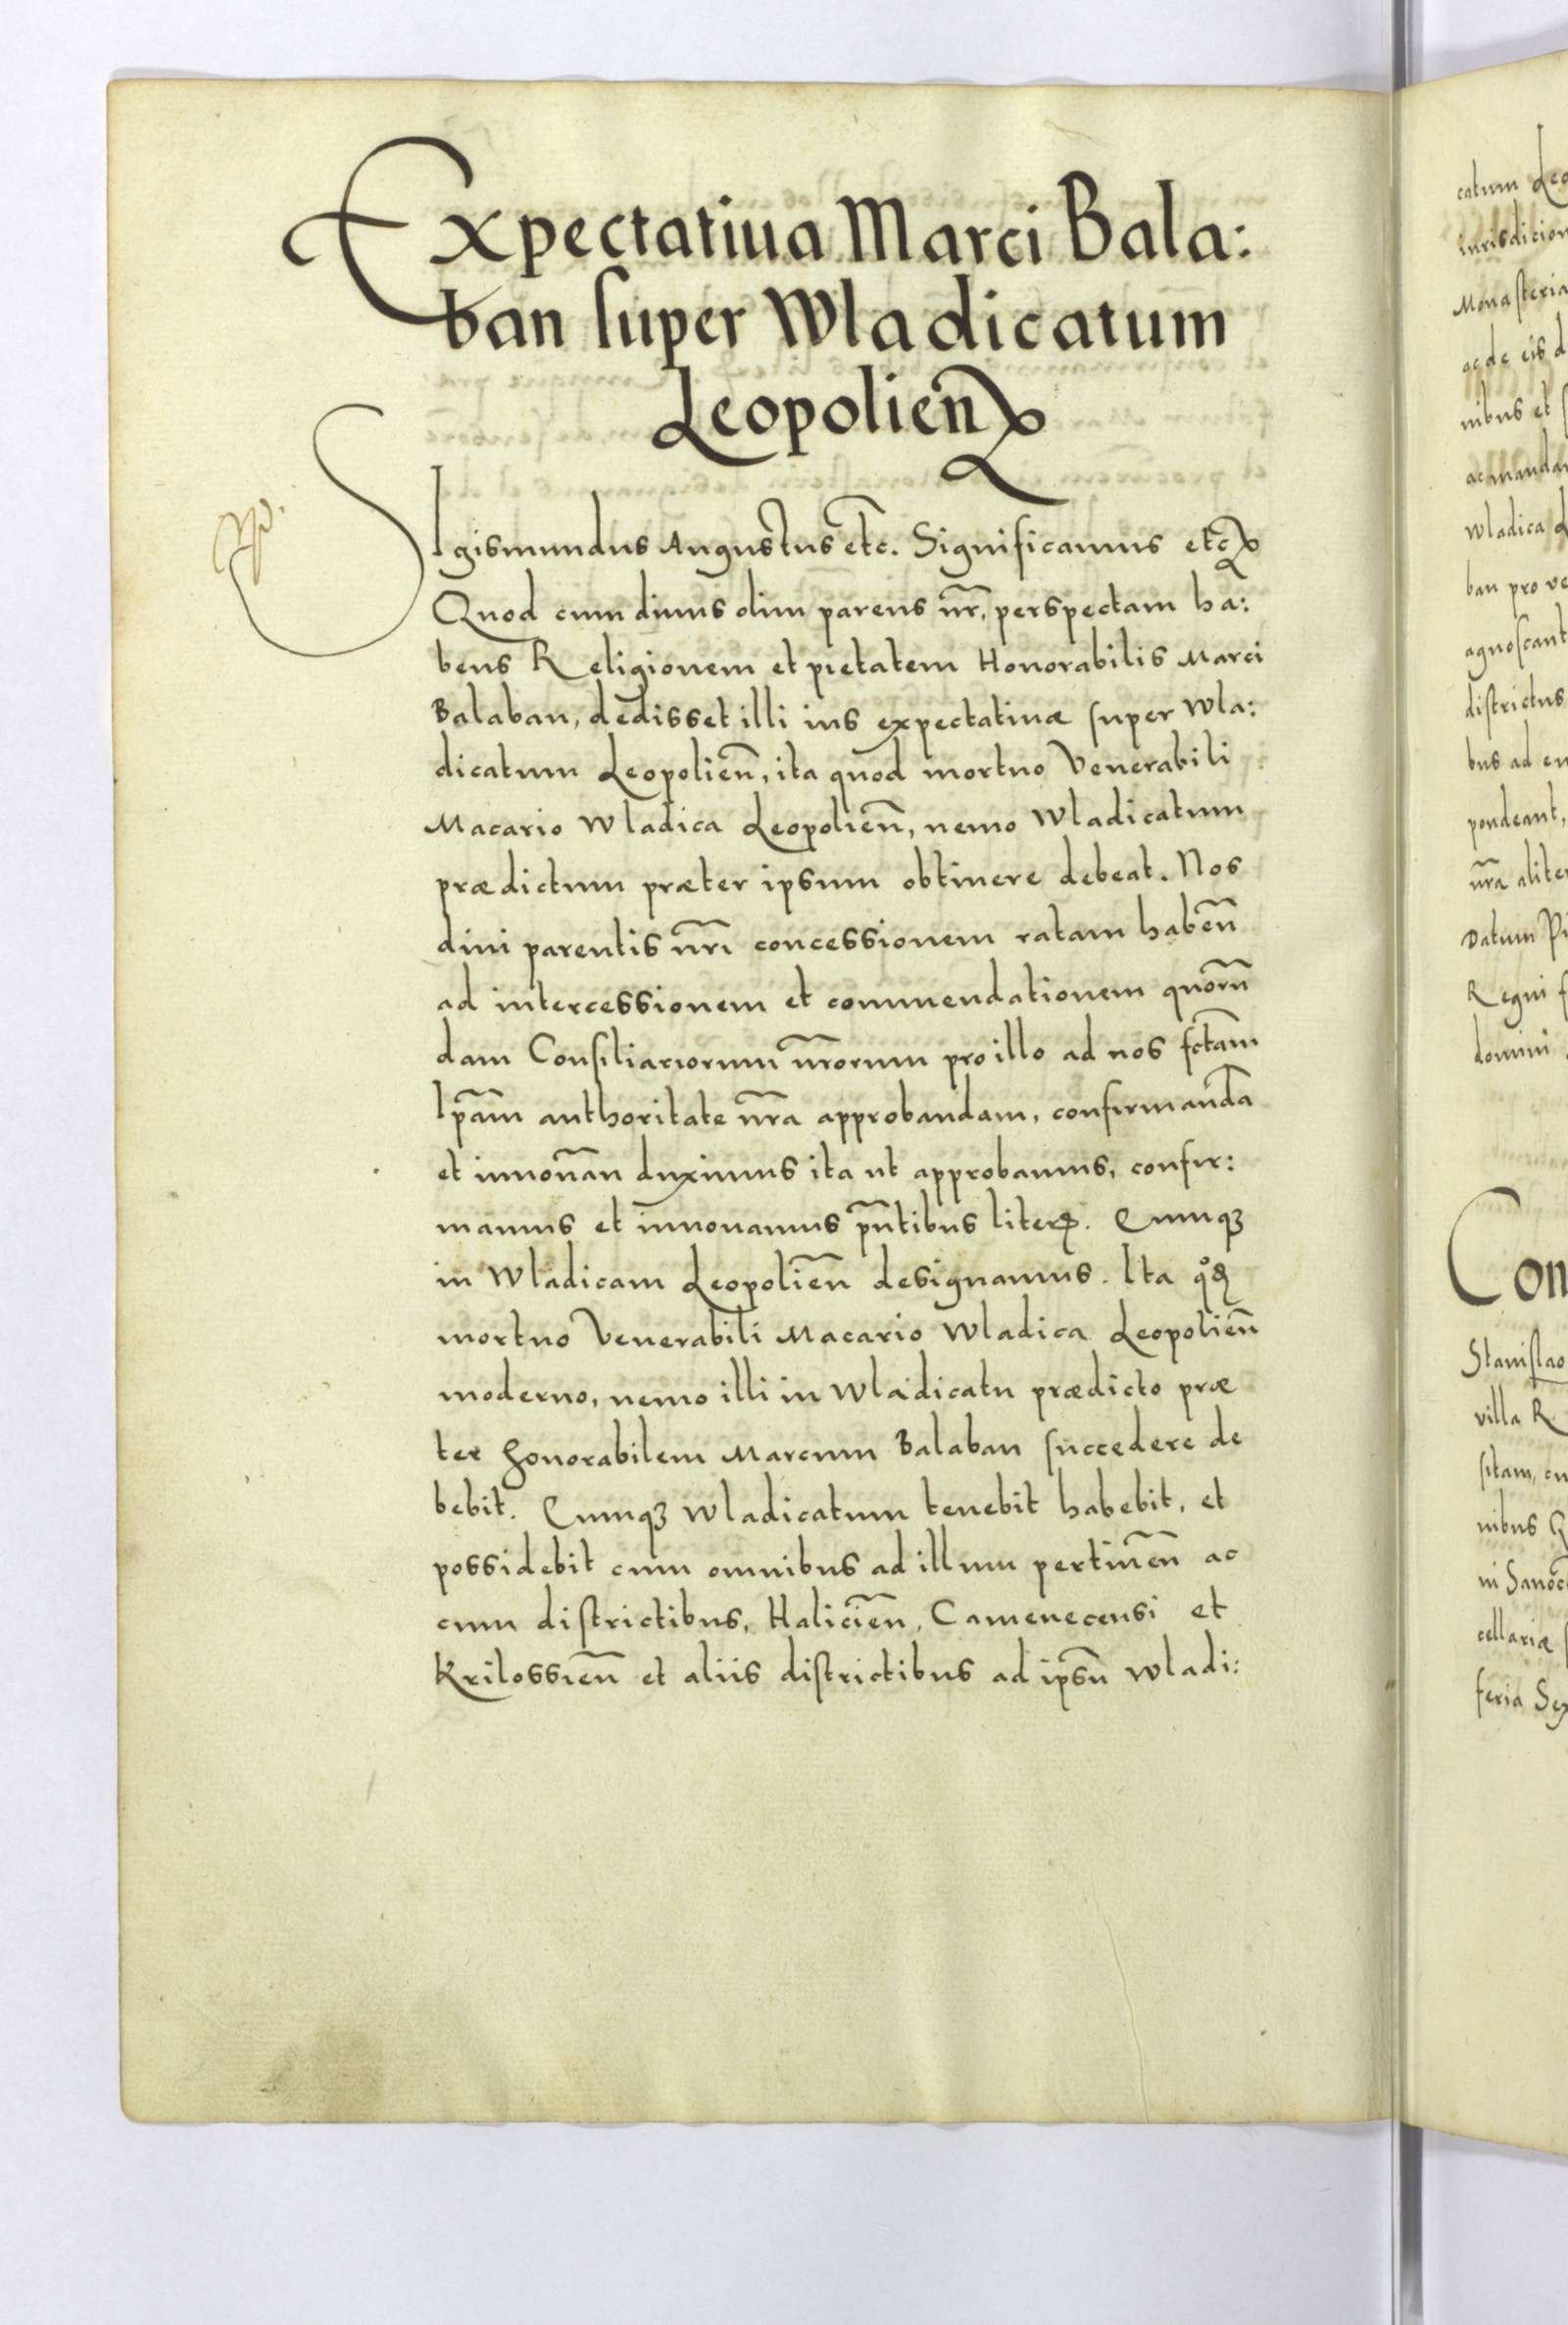 Expectatiua Marci Bala:
ban super Wladicatum
Leopolien̄
SIgismundus Augustus etc̄. Significamus etc̄
Quod cum diuus olim parens nr̄, perspectam ha:
bens Religionem et pietatem Honorabilis Marci
Balaban, dedisset illi ius expectatiuæ super Wla:
dicatum Leopolien̄, ita quod mortuo Venerabili
Macario Wladica Leopolien̄, nemo Wladicatum
prædictum præter ipsum obtinere debeat. Nos
diui parentis nr̄i concessionem ratam haben̄
ad intercessionem et commendationem quorūn
dam Consiliariorum nr̄orum pro illo ad nos fct̄am
Ip̄am authoritate nr̄a approbandam, confirmandā
et innouan̄ duximus ita ut approbamus, confir:
mamus et innouamus pn̄tibus literꝭ. Eumqꝫ
in Wladicam Leopolien̄ designamus. Ita qͦd
mortuo Venerabili Macario Wladica Leopolien̄
moderno, nemo illi in Wladicatu prædicto præ
ter Honorabilem Marcum Balaban succedere de
bebit. Eumqꝫ Wladicatum tenebit habebit, et
possidebit cum omnibus ad illum pertinen̄ ac
cum districtibus, Halicien̄, Camenecensi et
Krilossien̄ et aliis districtibus ad ipsū Wladi:
catum
iurisdicion
Monasteria
ac de eis
nibus et
ac manda
Wladica
ban pro
agnoscant
districtus
bus ad
pondeant,
nr̄a
Datum
Regni
domini
Con
Stanislao
villa R
sitam,
nibus
in
cellariæ
feria